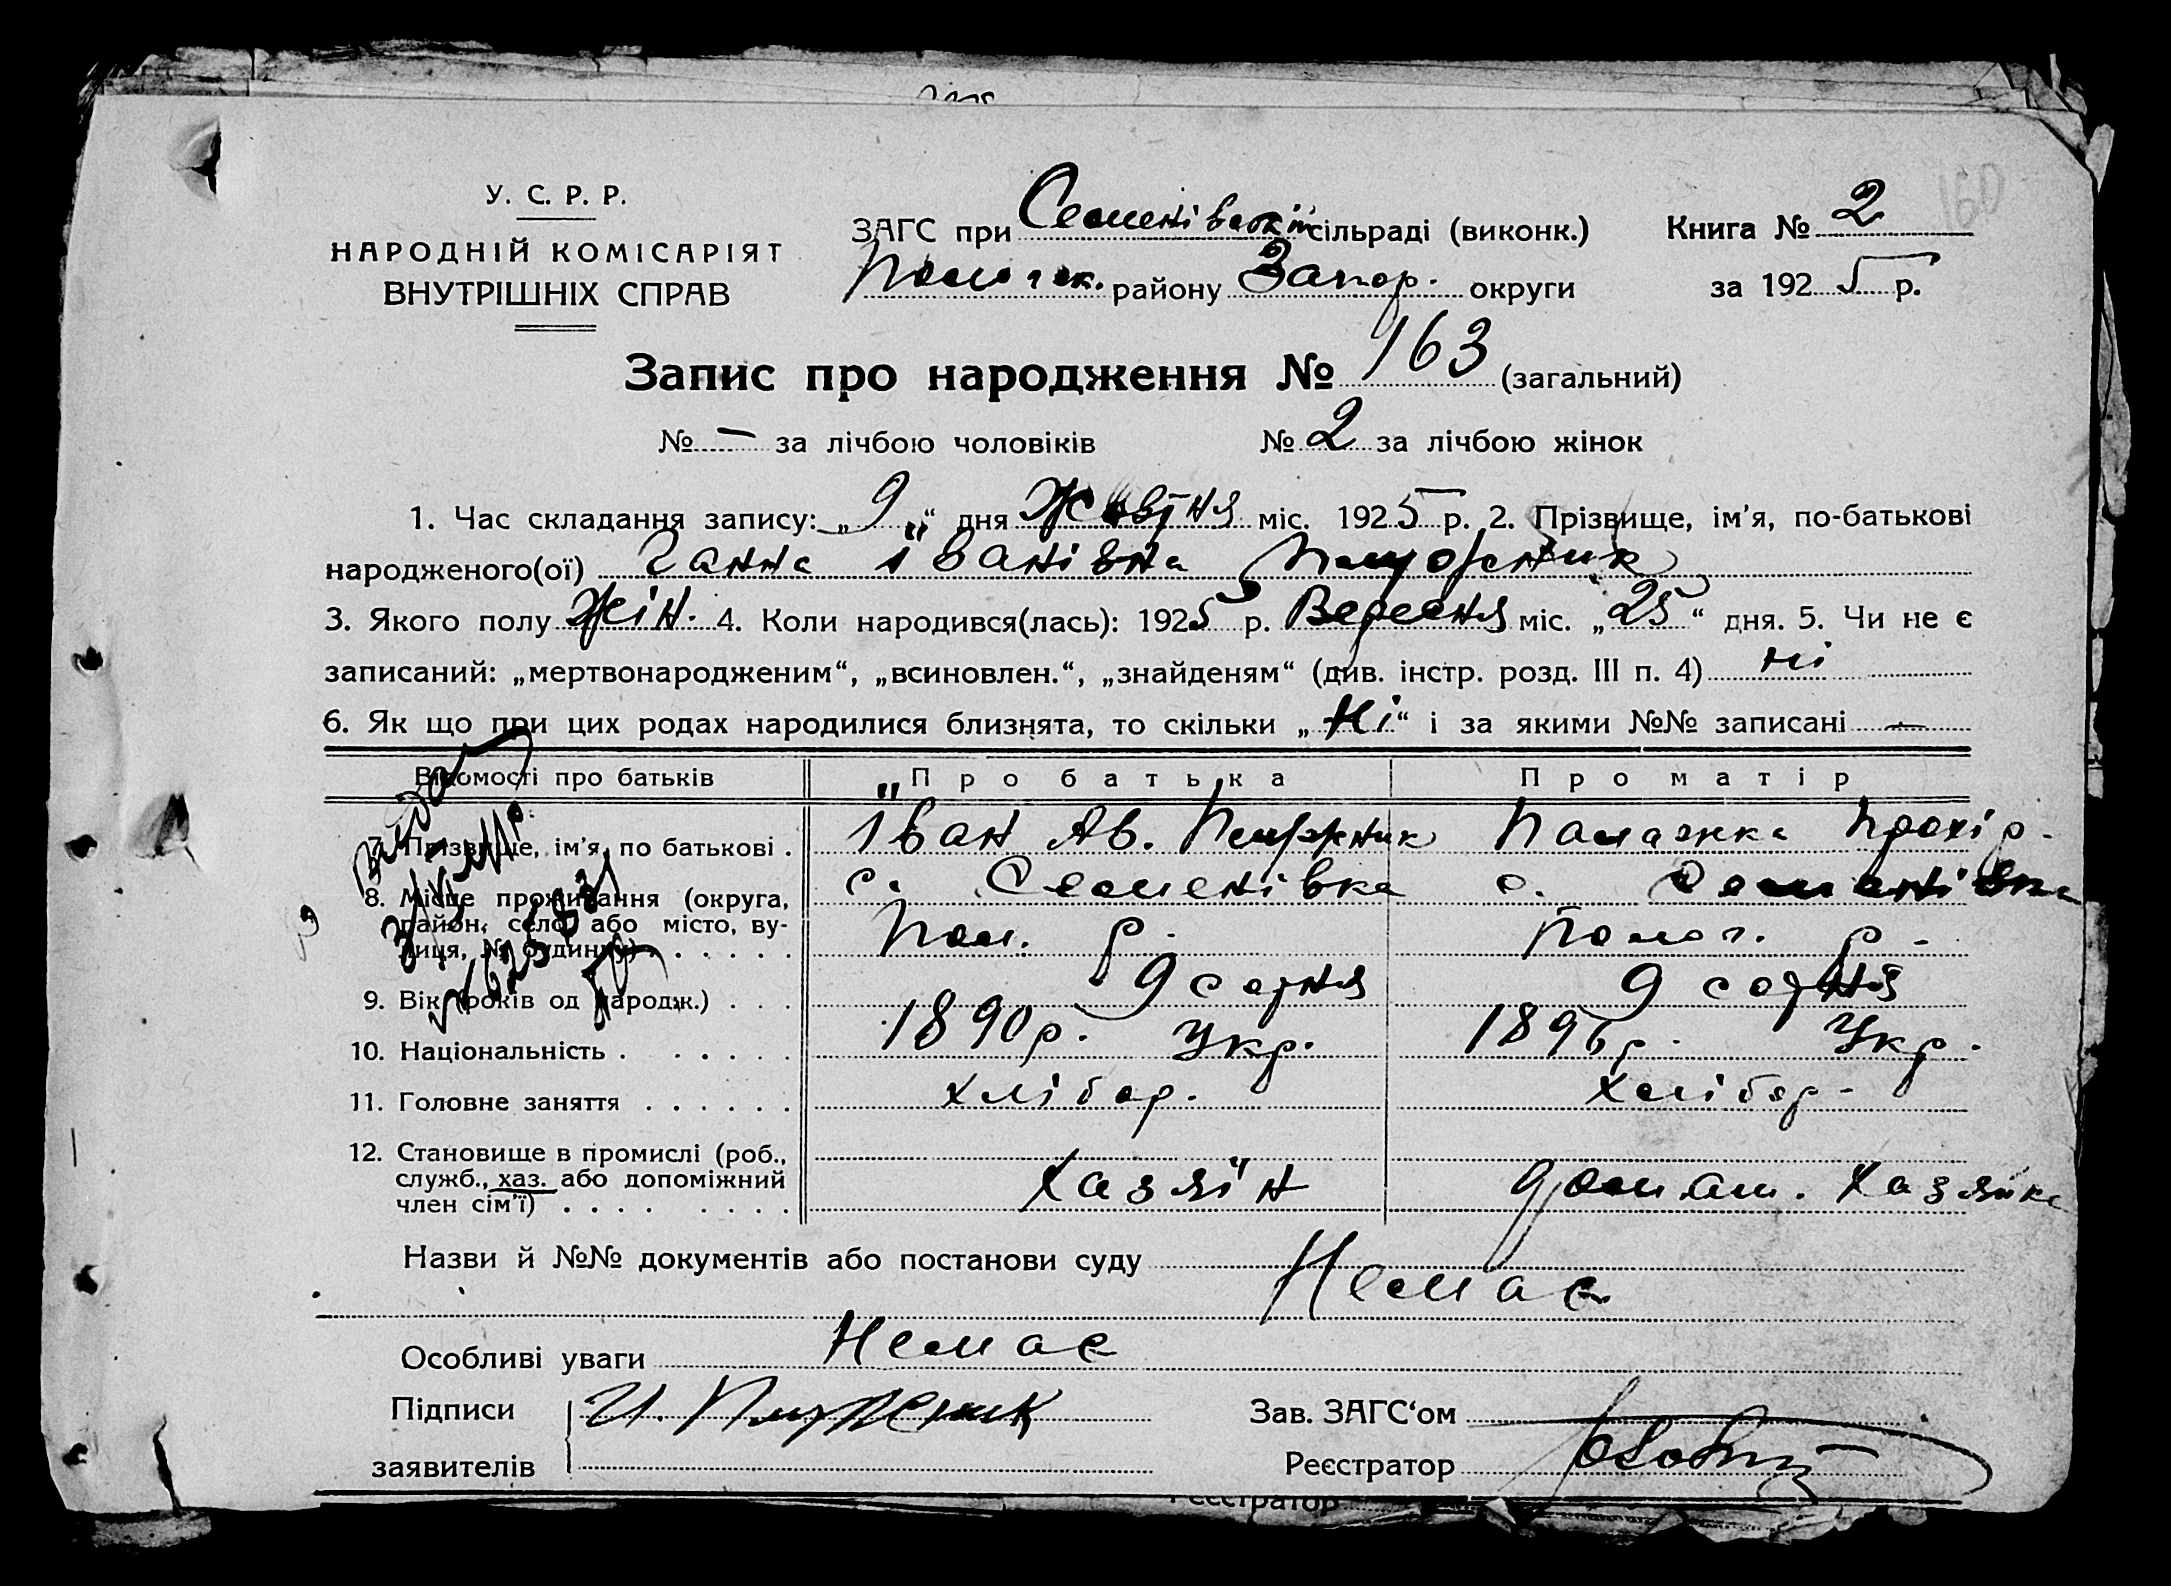 160
У. С. Р. Р.
НАРОДНІЙ КОМІСАРІЯТ
ВНУТРІШНІХ СПРАВ
ЗАГС при Семенівській сільраді (виконк.)
Полог ск. району Запор. округи
Книга № 2
за 1925 р.
Запис про народження № 163 (загальний)
№ – за лічбою чоловіків № 2 за лічбою жінок
1. Час складання запису: „9“ дня Жовтня міс. 1925 р. 2. Прізвище, ім’я, по-батькові
народженого(ої) Ганна Іванівна Плужник
3. Якого полу жін. 4. Коли народився(лась): 1925 р. Вересня міс. „25“ дня. 5. Чи не є
записаний: „мертвонародженим“, „всиновлен.“, „знайденям“ (див. інстр. розд. III п. 4) ні
6. Як що при цих родах народилися близнята, то скільки „Ні“ і за якими №№ записані —
Відомості про батьків Про батька Про матір
7. Прізвище, ім’я, по батькові . Іван Ав. Плужник Палажка Прохір.
8. Місце проживання (округа, с. Семенівка с. Семенівка
район, село, або місто, ву- Пол. р. Полог. р.
лиця, № будинку) . . . . . .
9 сотня 9 сотня
9. Вік (років од народж.) . . .
1890р. Укр. 1896р. Укр.
10. Національність . . . . . .
хлібор. хлібор.
11. Головне заняття . . . . . .
12. Становище в промислі (роб.,
служб., хаз. або допоміжний Хазяїн домаш. Хазяйка
член сім’ї) . . . . . . . .
Назви й №№ документів або постанови суду Немає
Особливі уваги Немає
Підписи И. Плужник
заявителів
Зав. ЗАГС‘ом
Реєстратор
Реєстратор